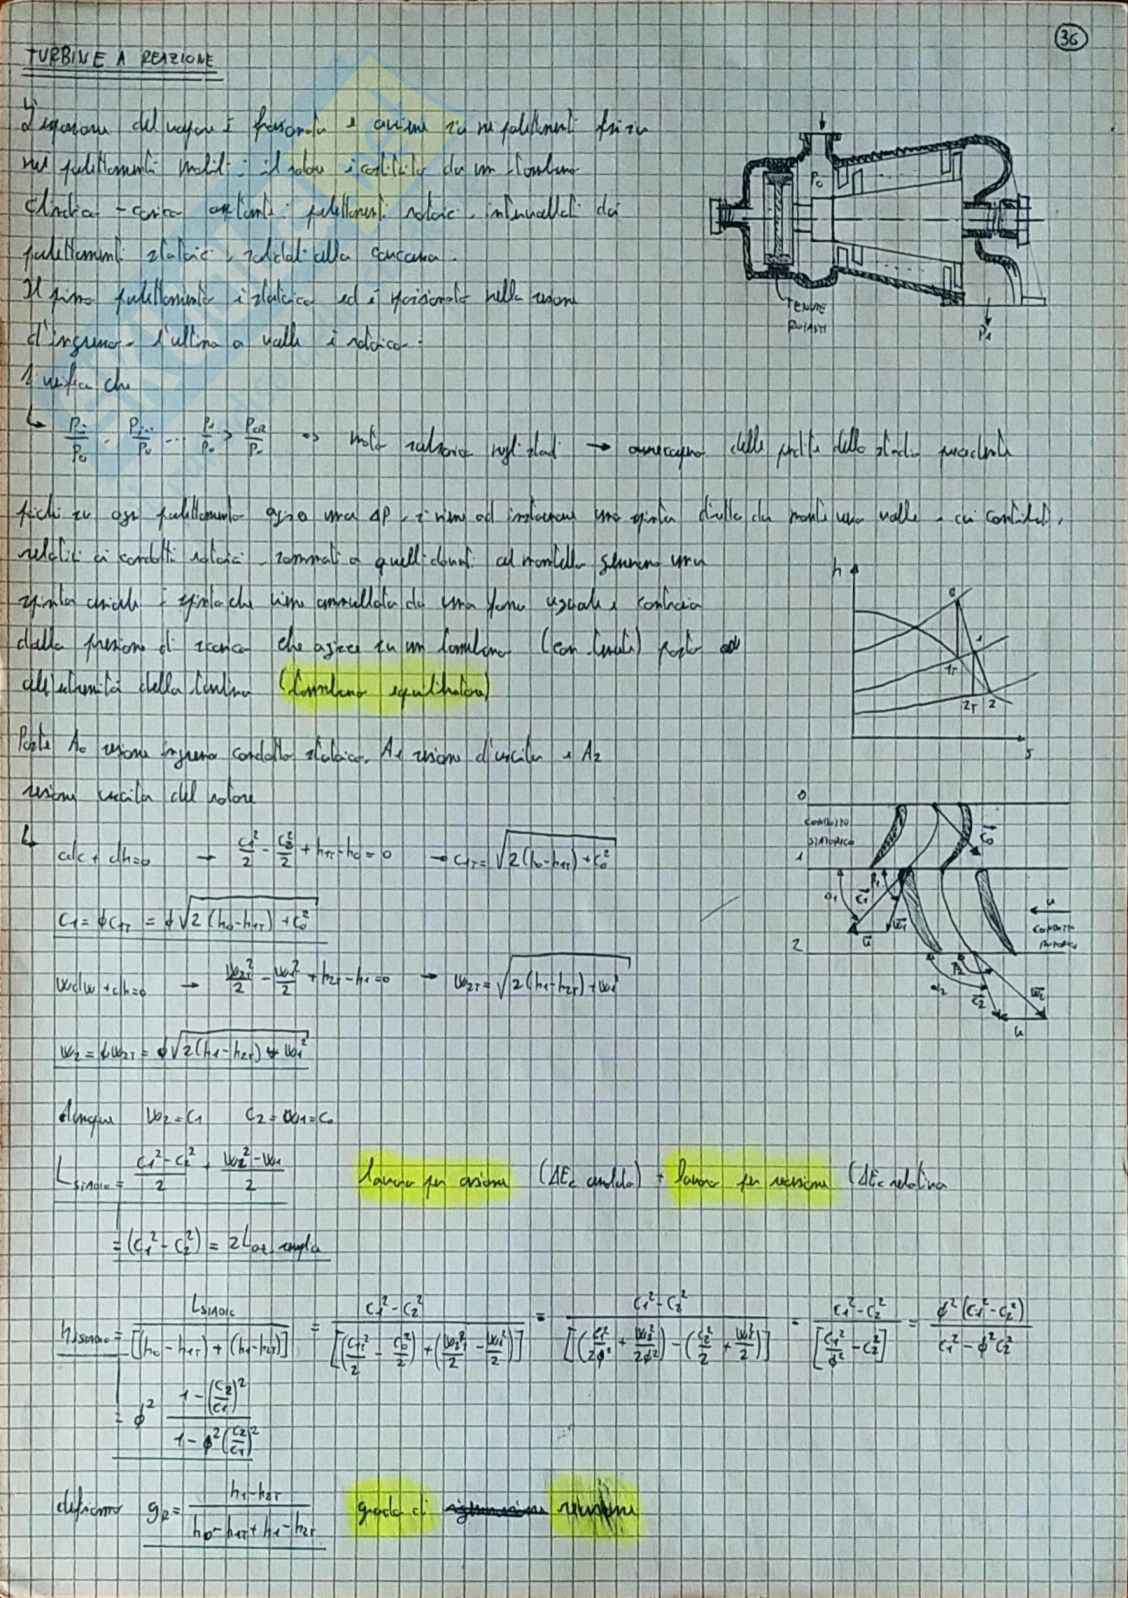 36
TURBINE A REAZIONE
L'espansione del vapore è frazionata e avviene sia nei palettamenti fissi sia
nei palettamenti mobili; il rotore è costituito da un tamburo
cilindrico - conico portante i palettamenti rotorici, intervallati dai
palettamenti statorici, saldati alla carcassa.
Il primo palettamento è statorico ed è posizionato nella sezione
d'ingresso, l'ultimo a valle è rotorico.
Si verifica che
moto subsonico negli stadi → delle perdite dello stadio precedente
poiché su ogni palettamento agisce una ΔP, si viene ad instaurare una spinta diretta da monte verso valle, i cui contributi,
relativi ai condotti rotorici, sommati a quelli dovuti al mantello generano una
spinta assiale; spinta che viene annullata da una forza uguale e contraria
dalla pressione di scarico che agisce su un tamburo (con tenute) posto
all'estremità della turbina (tamburo equilibratore)
P₀
TENUTE
P₁
h
0
1
1T
2T 2
s
Poste A₀ sezione ingresso condotto statorico, A₁ sezione d'uscita e A₂
sezione uscita del rotore
0
CONDOTTO
STATORICO
c₀
1
α₁ β₁ c₁ w₁ u
u
CONDOTTO
ROTORICO
2
α₂ β₂ c₂ w₂ u
cdc + dh=0 → c₁²/2 - c₀²/2 + h₁T - h₀ = 0 → c₁T = √(2(h₀-h₁T)+c₀²)
c₁ = φc₁T = φ√(2(h₀-h₁T)+c₀²)
wdw + dh=0 → w₂T²/2 - w₁²/2 + h₂T - h₁ = 0 → w₂T = √(2(h₁-h₂T)+w₁²)
w₂ = φw₂T = φ√(2(h₁-h₂T)+w₁²)
dunque w₂ = c₁ c₂ = w₁ = c₀
L STADIO = (c₁²-c₂²)/2 + (w₂²-w₁)/2 lavoro per azione (ΔEc assoluta) + lavoro per reazione (ΔEc relativa
= (c₁²-c₂²) = 2L
η STADIO = L STADIO/[(h₀-h₁T)+(h₁-h₂T)] = (c₁²-c₂²)/[(c₁T²/2 - c₀²/2)+(w₂T²/2 - w₁²/2)] = (c₁²-c₂²)/[(c₁²/2φ² + w₂²/2φ²)-(c₂²/2 + w₁²/2)] = (c₁²-c₂²)/[c₁²/φ² - c₂²] = φ²(c₁²-c₂²)/(c₁²-φ²c₂²)
= φ² (1-(c₂/c₁)²)/(1-φ²(c₂/c₁)²)
definiamo gR = (h₁-h₂T)/(h₀-h₁T+h₁-h₂T) grado di reazione